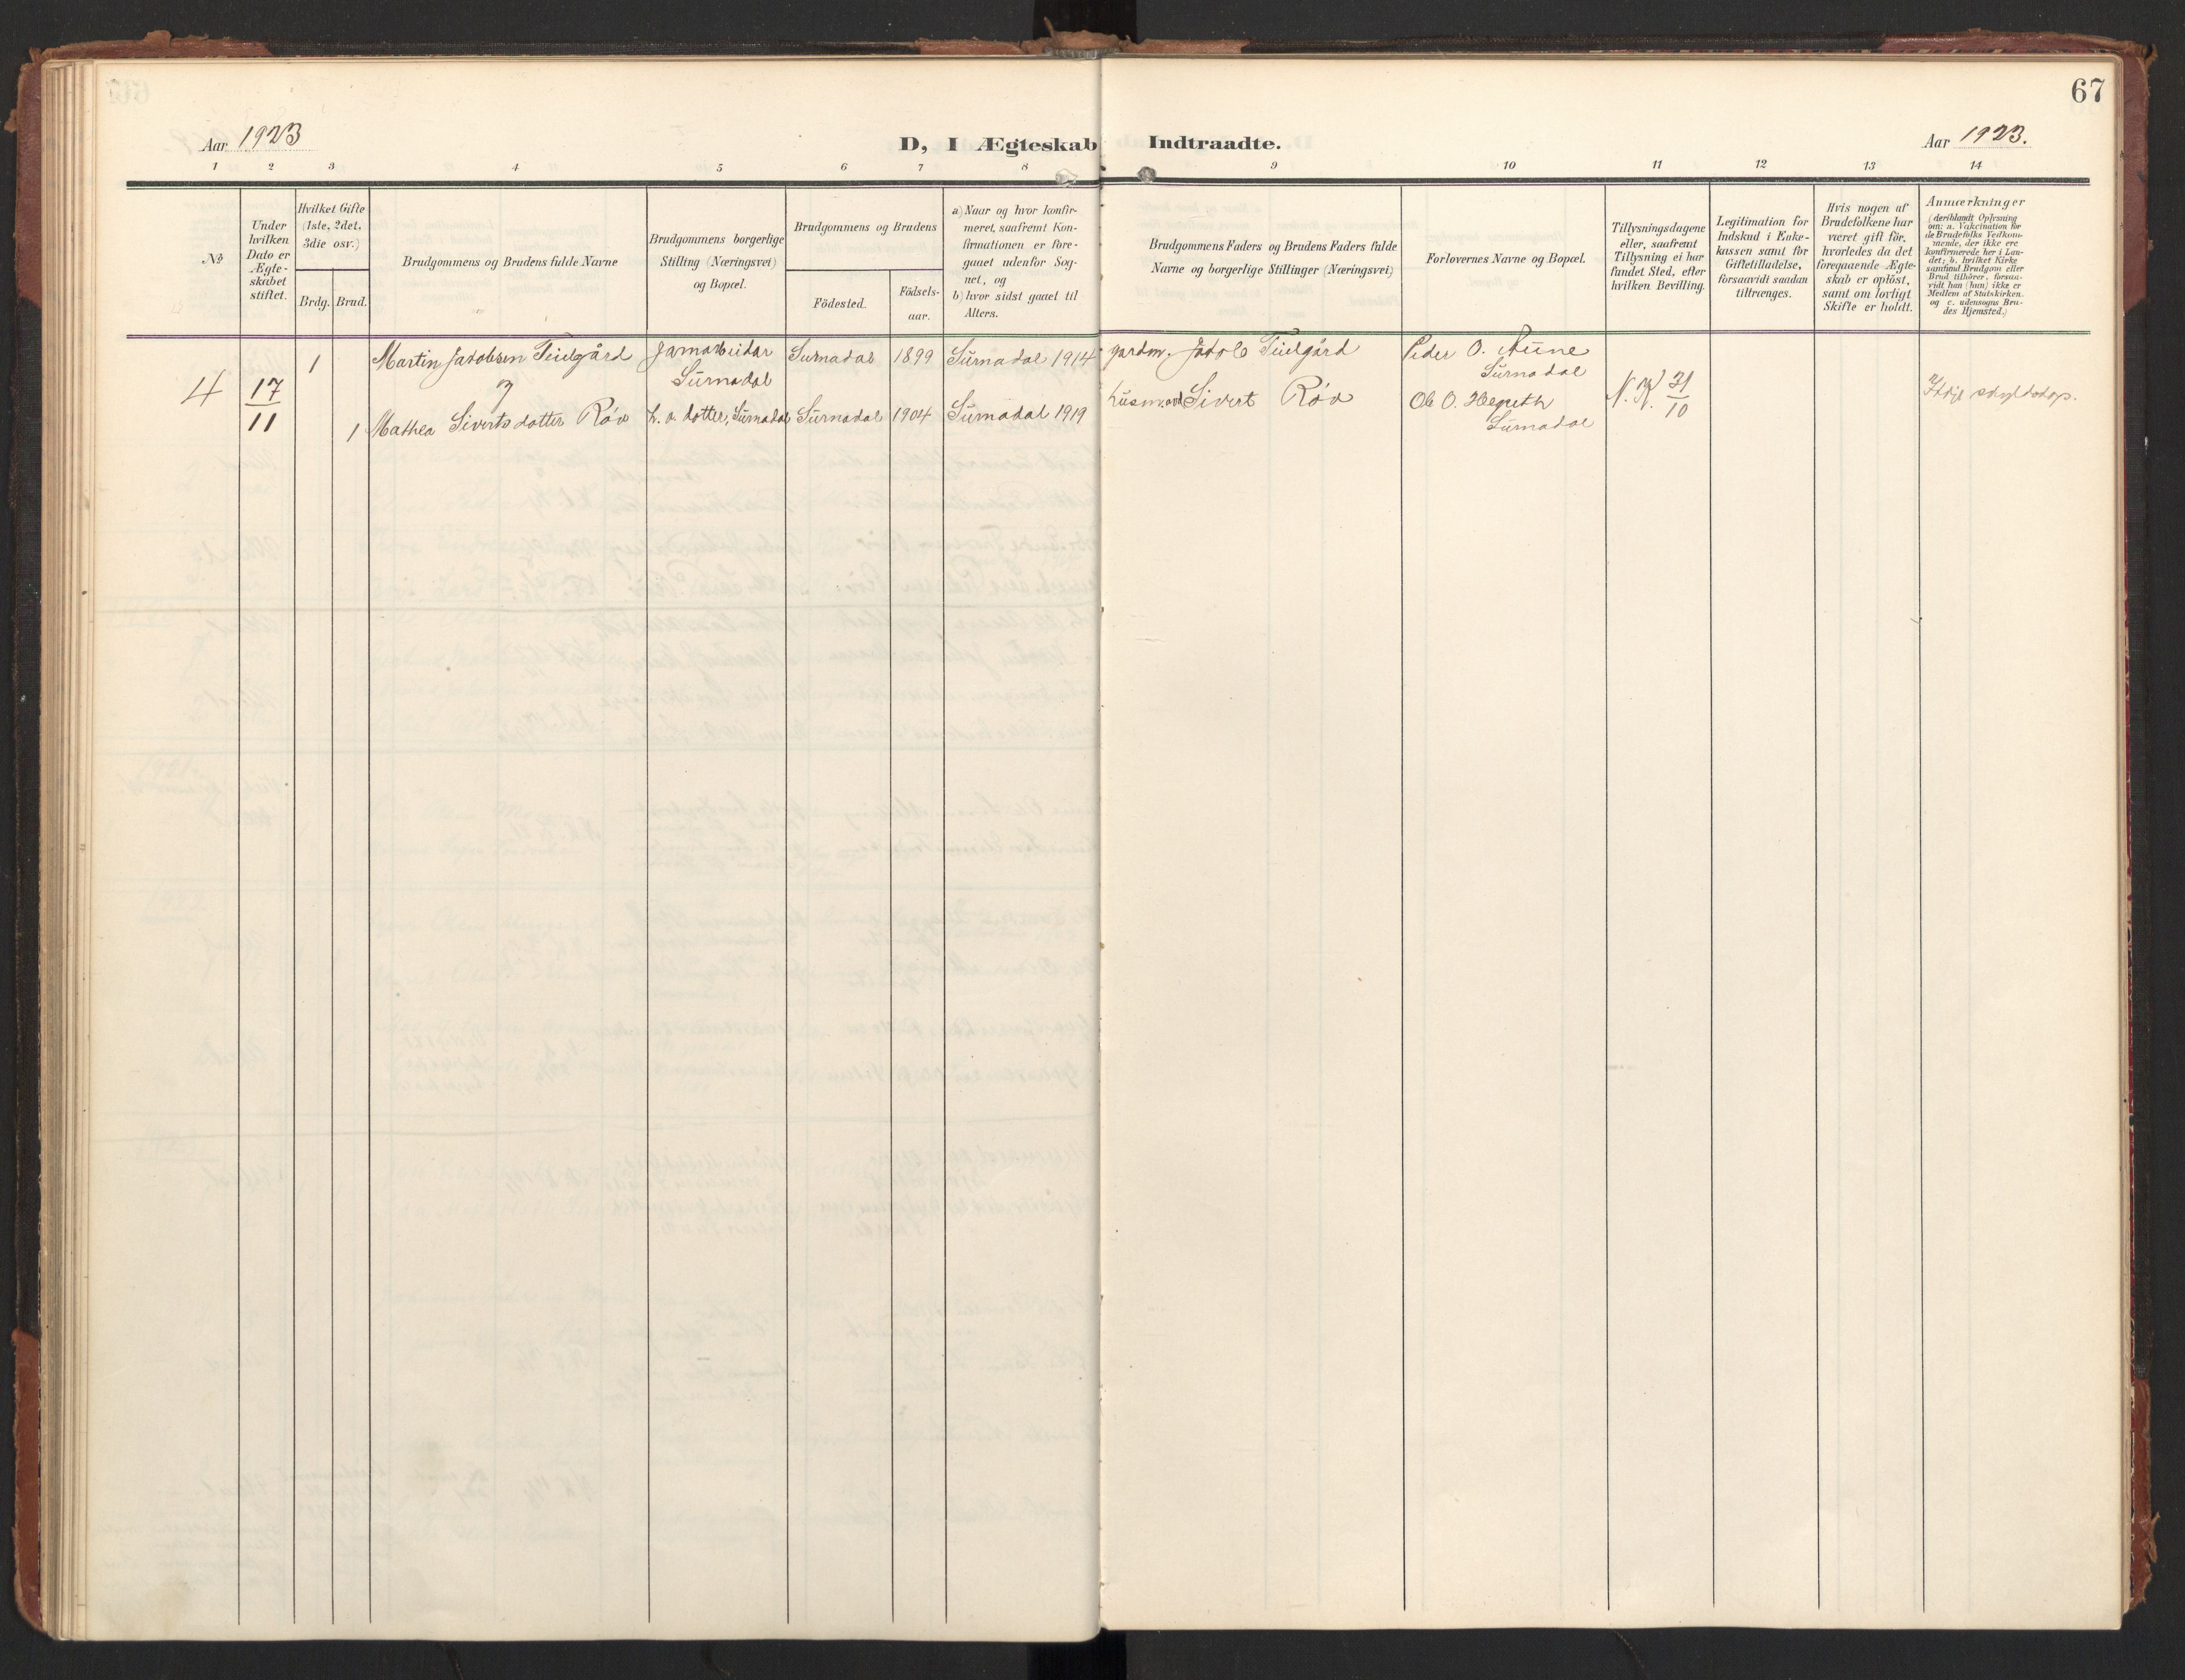 67
Aar 1923
D, I Ægteskab Indtraadte.
Aar 1923.
1 2 3 4 5 6 7 8 9 10 11 12 13 14
№
Under
hvilken
Dato er
Ægte-
skabet
stiftet.
Hvilket Gifte
(1ste, 2det,
3die osv.)
Brdg. Brud.
Brudgommens og Brudens fulde Navne
Brudgommens borgerlige
Stilling (Næringsvei)
og Bopæl.
Brudgommens og Brudens
Födested.
Födsels-
aar.
a) Naar og hvor konfir-
meret, saafremt Kon-
firmationen er fore-
gaaet udenfor Sog-
net, og
b) hvor sidst gaaet til
Alters.
Brudgommens Faders og Brudens Faders fulde
Navne og borgerlige Stillinger (Næringsvei)
Forlovernes Navne og Bopæl.
Tillysningsdagene
eller, saafremt
Tillysning ei har
fundet Sted, efter
hvilken Bevilling.
Legitimation for
Indskud i Enke-
kassen samt for
Giftetilladelse,
forsaavidt saadan
tiltrænges.
Hvis nogen af
Brudefolkene har
været gift för,
hvorledes da det
foregaaende Ægte-
skab er oplöst,
samt om lovligt
Skifte er holdt.
Anmærkninger
(deriblandt Oplysning
om: a. Vakcination for
de Brudefolks Vedkom-
mende, der ikke ere
konfirmerede her i Lan-
det; b. hvilket Kirke-
samfund Brudgom eller
Brud tilhörer, forsaa-
vidt han (hun) ikke er
Medlem af Statskirken.
og c. udensogns Bru-
des Hjemsted.)
1 Martin Jakobsen Teielgård Jarnarbeidar Surnadal 1899 Surnadal 1914 gardm. Jakob Teielgård Peder O. Aune
Surnadal Surnadal
4 17 11 og N. K. 31 10
1 Mathea Sivertsdotter Röv h. v. dotter, Surnadal Surnadal 1904 Surnadal 1919 husm. Sivert Röv Ole O.
Surnadal
Ikkje skyldskap.